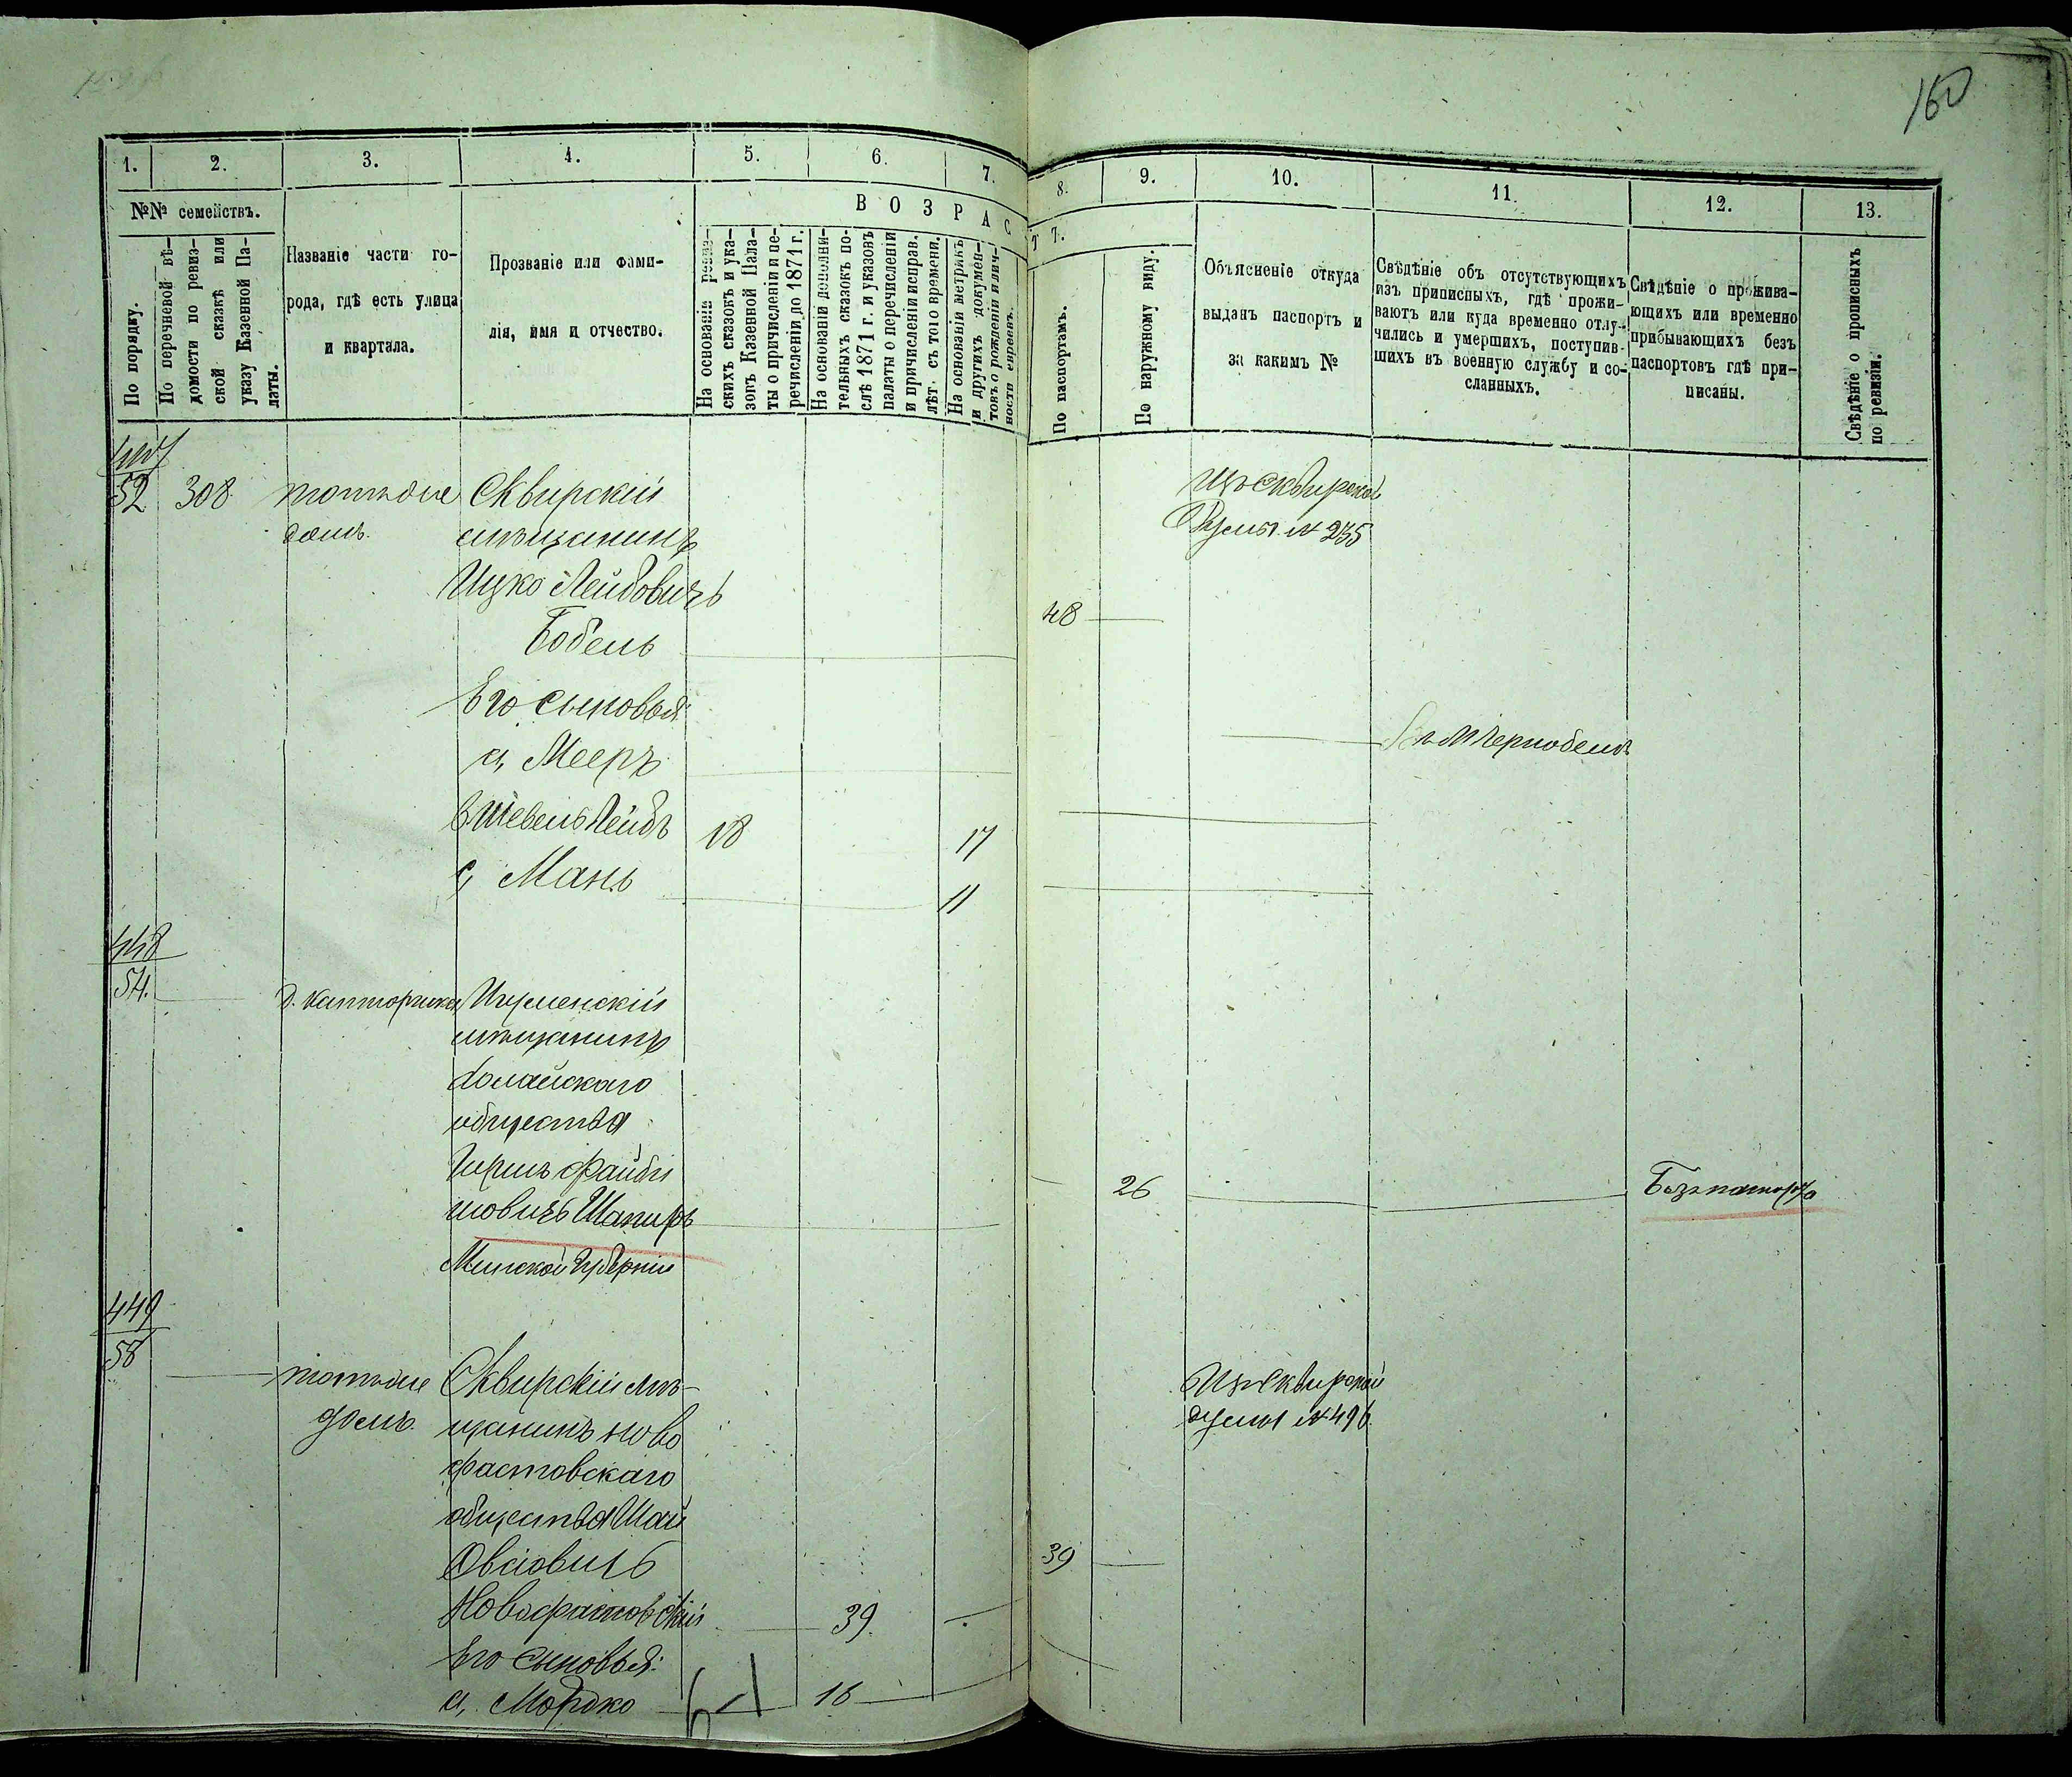 160
1.
2.
3.
4.
5.
6.
7.
8.
9.
10.
11.
12.
13.
№№ семействъ.
По порядку.
По перечневой вѣ-
домости по ревиз-
ской сказкѣ или
указу Казенной Па-
латы.
Названіе части го-
рода, гдѣ есть улица
и квартала.
Прозваніе или фами-
лія, имя и отчество.
ВОЗРАСТ 7.
На основаніи ревиз-
скихъ сказокъ и ука-
зовъ Казенной Пала-
ты о причисленіи и пе-
речисленіи до 1871 г.
На основаніи дополни-
тельныхъ сказокъ по-
слѣ 1871 г. и указовъ
палаты о перечисленіи
и причисленіи исправ.
лѣт. съ того времени.
На основаніи метрикъ
и другихъ докумен-
товъ о рожденіи и лич-
ности евреевъ.
По паспортамъ.
По наружному виду.
Объясненіе откуда
выданъ паспортъ и
за какимъ №
Свѣдѣніе объ отсутствующихъ
изъ приписныхъ, гдѣ прожи-
ваютъ или куда временно отлу-
чились и умершихъ, поступив-
шихъ въ военную службу и со-
сланныхъ.
Свѣдѣніе о прожива-
ющихъ или временно
прибывающихъ безъ
паспортовъ гдѣ при-
писаны.
Свѣдѣніе о прописныхъ
по ревизіи.
447
52 308 тотъ же Сквирскій Изъ Сквирской
домъ. мѣщанинъ Думы № 235
Ицко Лейбовичъ 48
Бобель
Его сыновья:
а, Мееръ Въ М Чернобелѣ
в. Шевель Лейбъ 18 17
с, Мань 11
448
54. Игуменскій
мѣщанинъ
общества
Гиршъ Файби
шовичъ Шапиръ 26 Безъ паспорта
Минской Губерніи
449
58 тотъ же Сквирскій мѣ- Изъ Сквирской
домъ. щанинъ ново думы № 496.
фастовскаго
общества Шай
Овсіовичъ 39
Новофастовскій 39.
Его сыновья:
а, Мордко 16